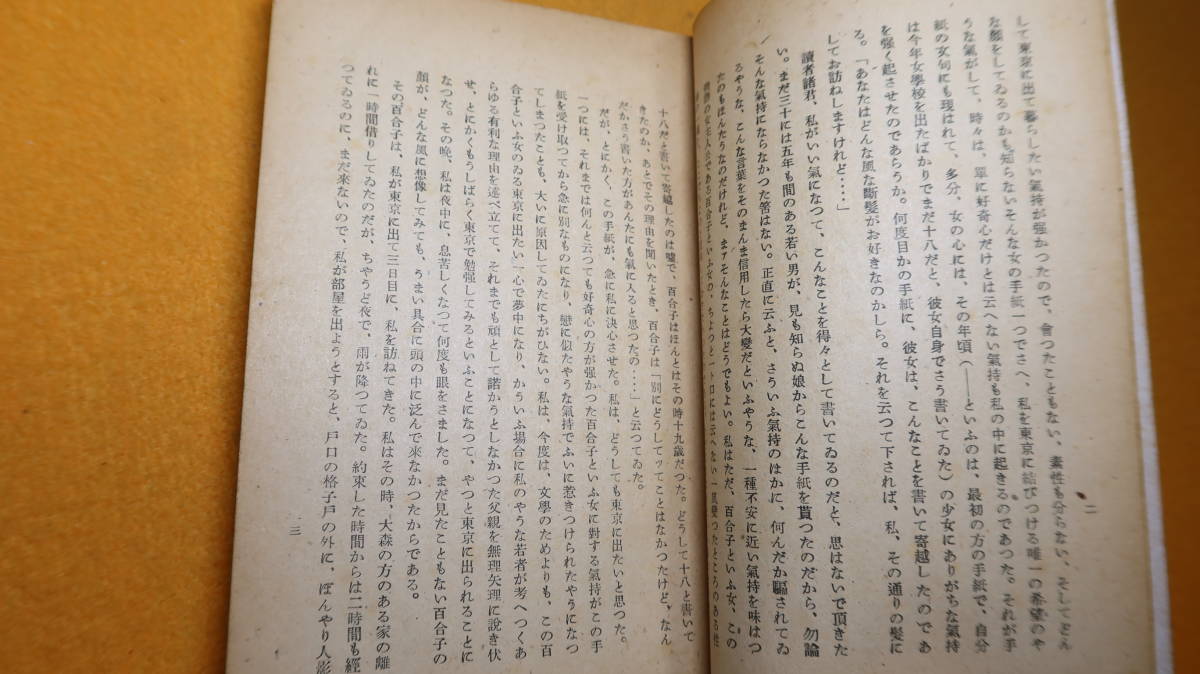 二
して東京に出て暮らしたい氣持が强かつたので、會つたこともない、素性も分らない、そしてどん
な顏をしてゐるのかも知らないそんな女の手紙一つでさへ、私を東京に結びつける唯一の希望のや
うな氣がして、時々は、單に好奇心だけとは云へない氣持も私の中に起きるのであつた。それが手
紙の文句にも現はれて、多分、女の心には、その年頃(――といふのは、最初の方の手紙で、自分
は今年女學校を出たばかりでまだ十八だと、彼女自身でさう書いてゐた)の少女にありがちな氣持
を强く起させたのであらうか。何度目かの手紙に、彼女は、こんなことを書いて寄越したのであ
る。「あなたはどんな風な斷髮がお好きなのかしら。それを云つて下されば、私、その通りの髮に
してお訪ねしますけれど‥‥」
讀者諸君、私がいい氣になつて、こんなことを得々として書いてゐるのだと、思はないで頂きた
い。まだ三十には五年も間のある若い男が、見も知らぬ娘からこんな手紙を貰つたのだから、勿論
そんな氣持にならなかつた筈はない。正直に云ふと、さういふ氣持のほかに、何んだか騙されてゐ
るやうな、こんな言葉をそのまんま信用したら大變だといふやうな、一種不安に近い氣持を味はつ
たのもほんたうなのだけれど、まァそんなことはどうでもよい。私はただ、百合子といふ女、この
物語の女主人公である百合子といふ女の、ちよつと一ト口には云へない一風變つたところのある性
十八だと書いて寄越したのは噓で、百合子はほんとはその時十九歲だつた。どうして十八と書いて
きたのか、あとでその理由を聞いたとき、百合子は「別にどうしてッてことはなかつたけど、なん
だかさう書いた方があんたにも氣に入ると思つたの‥‥」と云つてゐた。
だが、とにかく、この手紙が、急に私に決心させた。私は、どうしても東京に出たいと思つた。
一つには、それまでは何んと云つても好奇心の方が强かつた百合子といふ女に對する氣持がこの手
紙を受け取つてから急に別なものになり、戀に似たやうな氣持でふいに惹きつけられたやうになつ
てしまつたことも、大いに原因してゐたにちがひない。私は、今度は、文學のためよりも、この百
合子といふ女のゐる東京に出たい一心で夢中になり、かういふ場合に私のやうな若者が考へつくあ
らゆる有利な理由を述べ立てて、それまでも頑として諾かうとしなかつた父親を無理矢理に說き伏
せ、とにかくもうしばらく東京で勉强してみるといふことになつて、やつと東京に出られることに
なつた。その晚、私は夜中に、息苦しくなつて何度も眼をさました。まだ見たこともない百合子の
顏が、どんな風に想像してみても、うまい具合に頭の中に泛んで來なかつたからである。
その百合子は、私が東京に出て三日目に、私を訪ねてきた。私はその時、大森の方のある家の離
れに一時間借りしてゐたのだが、ちやうど夜で、雨が降つてゐた。約束した時間からは二時間も經
つてゐるのに、まだ來ないので、私が部屋を出ようとすると、戶口の格子戶の外に、ぼんやり人影
三